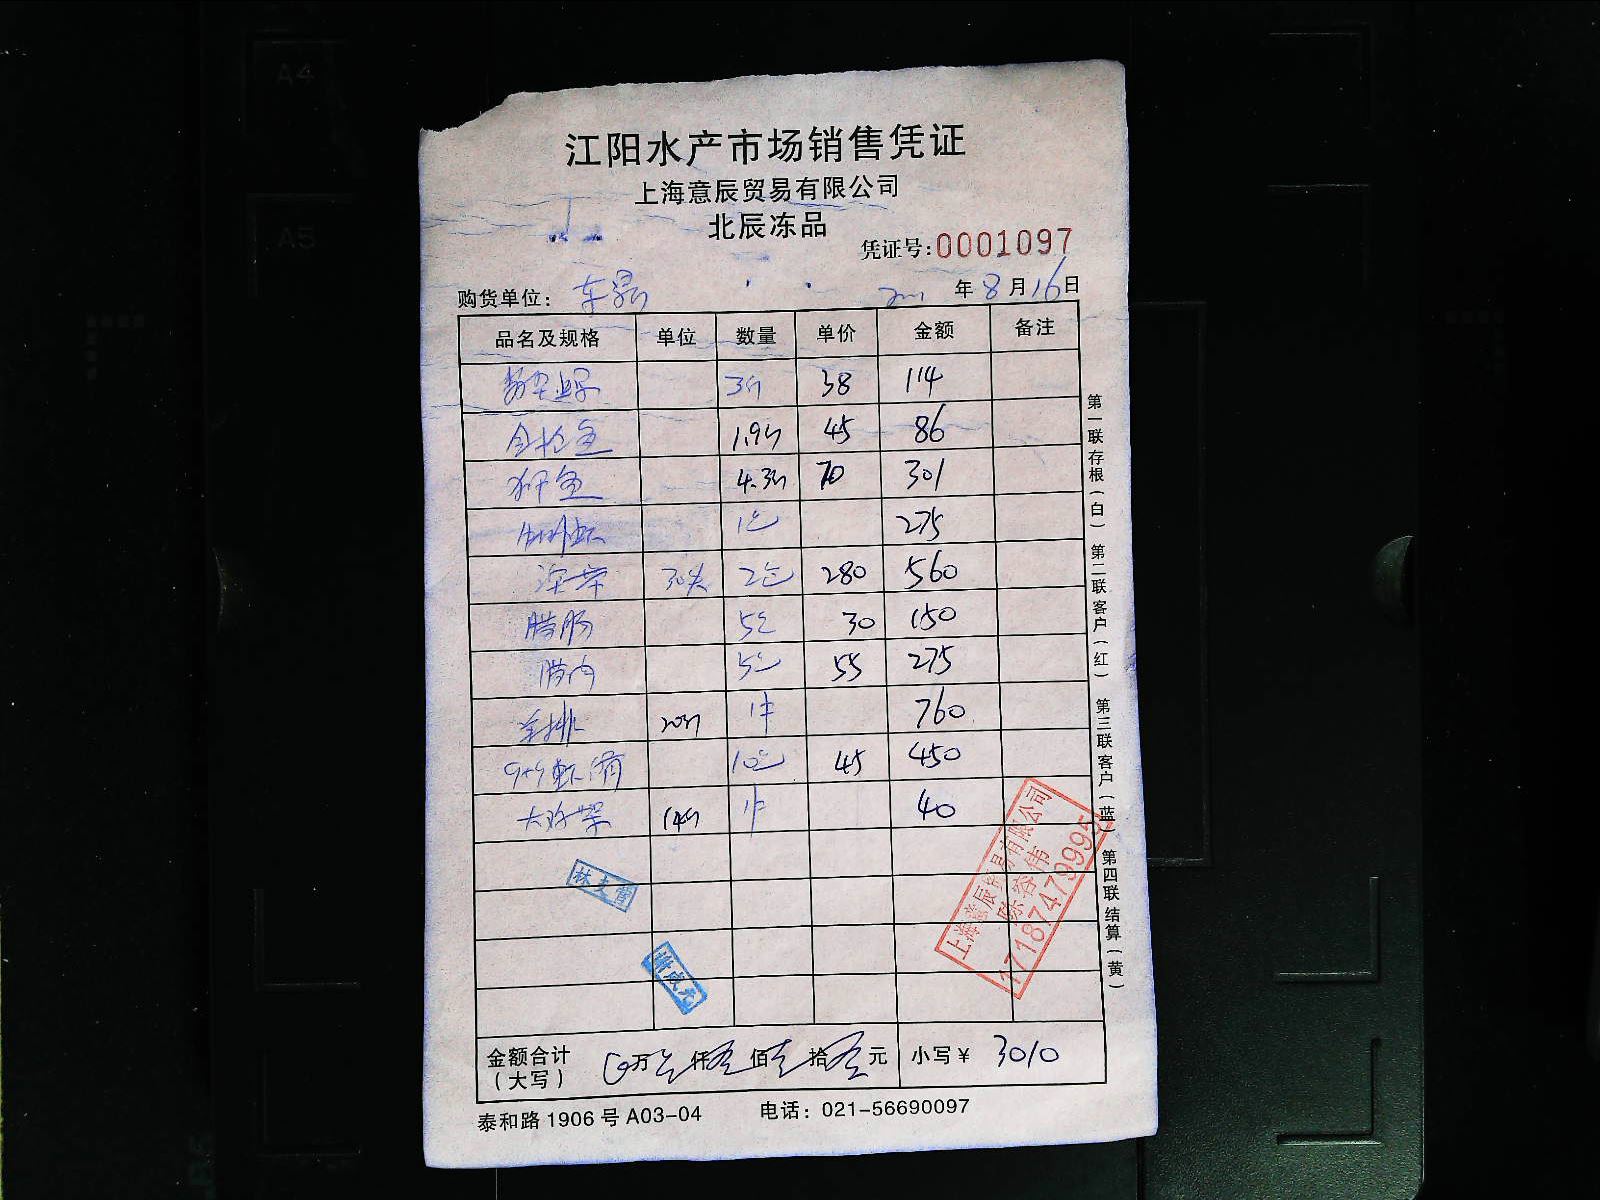 A4
A5
江阳水产市场销售凭证
上海意辰贸易有限公司
北辰冻品
凭证号:0001097
购货单位: 东
年 8 月 16 日
品名及规格 单位 数量 单价 金额 备注
3斤 38 114
金枪鱼 1.9斤 45 86
鱼 4.3斤 70 301
1包 275
30头 2包 280 560
腊肠 5包 30 150
腊肉 5包 55 275
羊排 20斤 1件 760
虾滑 10包 45 450
大鸡架 14斤 1件 40
林支雷
谢成元
上海意辰贸易有限公司
陈容伟
17187479995
金额合计
(大写)
万 仟 佰 拾 元 小写¥ 3010
泰和路 1906 号 A03-04 电话: 021-56690097
第一联存根(白) 第二联客户(红) 第三联客户(蓝) 第四联结算(黄)